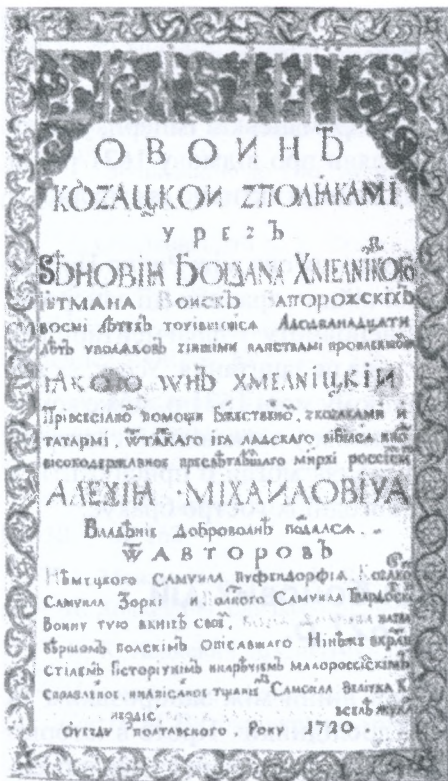 СКАЗАНИЕ
О ВОИНѢ
КОZАЦКОИ ZПОЛЯКАМІ
ЧРЕZЪ
ЗѢНОВІЯ БОГДАНА ХМЕЛНІЦКОГО
ГЕТМАНА ВОИСКЪ ЗАПОРОЖСКІХЪ
ВОСМІ ЛѢТЕХЪ ТОЧИВШОЙСЯ АДОДВАНАДЦАТИ
ЛѢТЪ УПОЛЯКОВЪ ZІНШИМИ ПАНСТВАМІ ПРОВЛЕКШОЙ
ІАКОТО ѠНЪ ХМЕЛНІЦКІЙ
ПРІВСЕСІЛНОЙ ПОМОЩИ БЖЕСТВЕННОЙ, ZКОZАКАМИ И
ТАТАРМІ, ѾТЯЖКАГО ІГА ЛЯДСКАГО ВІБИЛСЯ
ВІСОКОДЕРЖАВНОЕ ПРЕСВѢТЛѢЙШАГО МНРХІ РОССІЙСК
АЛЕХІЯ МІХАИЛОВІЧА
ВЛАДѢНІЕ ДОБРОВОЛНѢ ПОДАЛСЯ.
ѾАВТОРОВЪ
НѢМЕЦКОГО САМУИЛА ПУФЕНДОРФІЯ, КОZАЦКО
САМУИЛА ЗОРКІ И ПОЛСКОГО САМУИЛА ТВАРДОВСК
ВОИНУ ТУЮ ВКНИЗѢ СВОЕЙ,
ВѢРШОМЪ ПОЛСКІМЪ ОПІСАВШАГО НІНѢЖЕ ВКРАТ
СТІЛЕМЪ ГІСТОРІЧНІМЪ ИНАРѢЧІЕМЪ МАЛОРОССІЙСКІМЪ
СПРАВЛЕНОЕ, ИНАПІСАНОЕ ТЩАНІЕМЪ САМОИЛА ВЕЛІЧКА К.
ВСЕЛѢ ЖУКАХ
ОУЕZДУ ПОЛТАВСКОГО, РОКУ 1720.